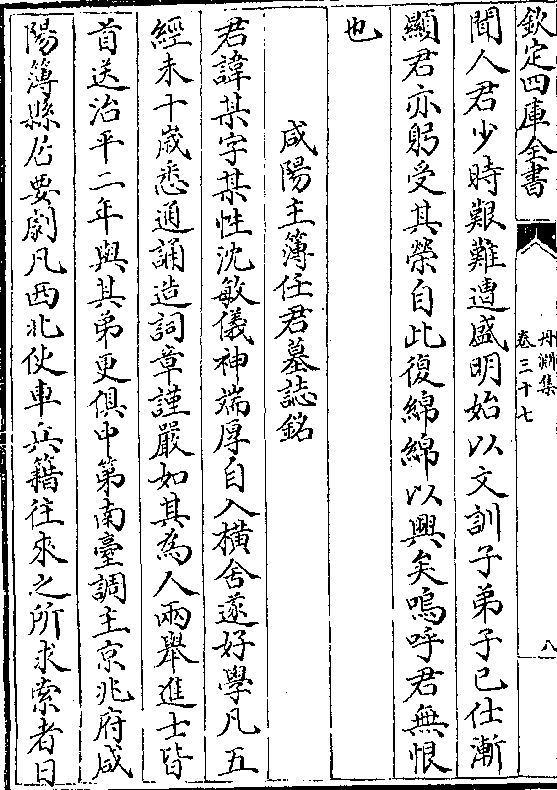 欽定四庫全書
丹淵集
卷三十七
八
聞人君少時艱難遭盛明始以文訓子弟子已仕漸
顯君亦躬受其榮自此復綿綿以興矣嗚呼君無恨
也
咸陽主簿任君墓誌銘
君諱某字某性沈敏儀神端厚自入橫舍遂好學凡五
經未十歲悉通誦造詞章謹嚴如其為人兩舉進士皆
首送治平二年與其弟更俱中第南臺調主京兆府咸
陽簿縣居要劇凡西北使車兵籍往來之所求索者日